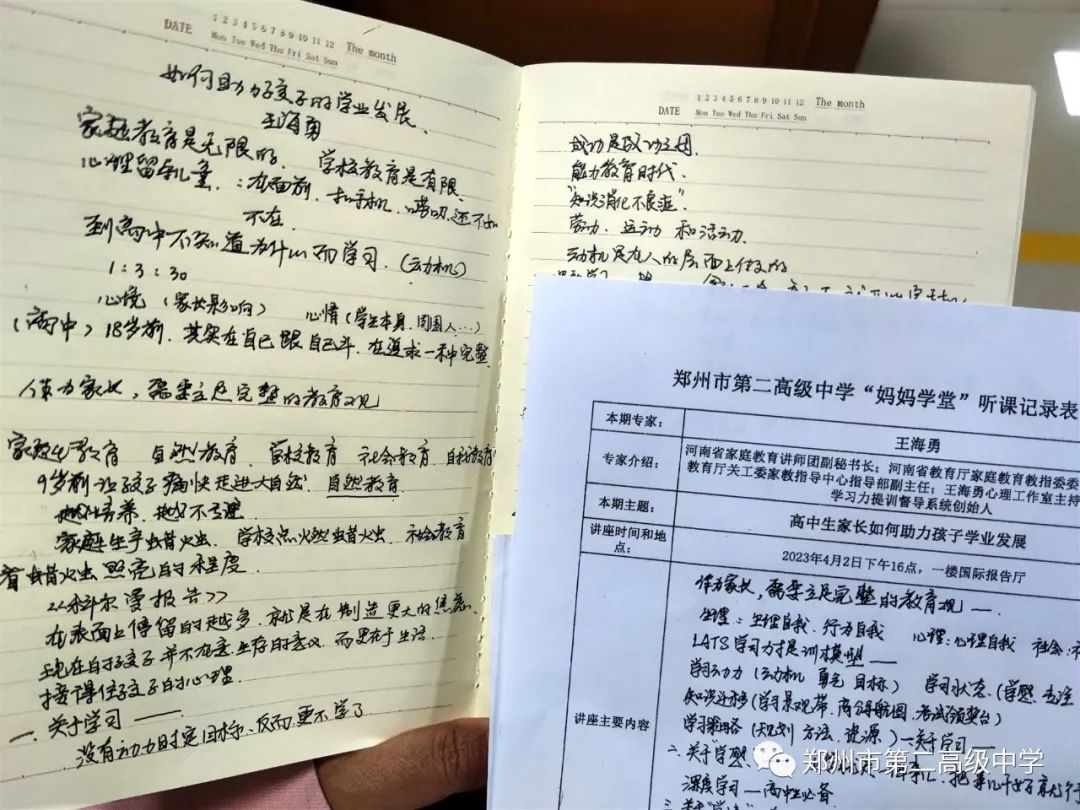 DATE 1 2 3 4 5 6 7 8 9 10 11 12 The month
Mon Tue Wed Thu Fri Sat Sun
如何助力孩子的学业发展、
王海勇
家庭教育是无限的、 学校教育是有限、
心理留守儿童、:在面前、扣手机、唠叨、还不如
不在、
到高中不知道为什么而学习、(动机)
1:3:30
心境(家长影响) 心情(学生本身、周围人…)
(高中)18岁前、其实在自己跟自己斗、在追求一种完整
作为家长,需要立足完整的教育观
家庭教育 自然教育、学校教育 社会教育、自我教育
9岁前让孩子痛快走进大自然、自然教育
家庭生产蜡烛、学校点燃蜡烛、社会教育
看蜡烛照亮的程度
<<科尔曼报告>>
在表面上停留的越多、就是在制造更大的焦虑、
现在的孩子并不在意生存的意义、而更在于生活、
接得住孩子的心理、
一、关于学习——
没有动力时定目标、反而更不学了
DATE 1 2 3 4 5 6 7 8 9 10 11 12 The month
Mon Tue Wed Thu Fri Sat Sun
成功是成功之母、
能力教育时代、
"知识消化不良症"、
劳动、运动 和活动、
动机是在人的层面上住的
郑州市第二高级中学"妈妈学堂"听课记录表
本期专家: 王海勇
专家介绍: 河南省家庭教育讲师团副秘书长;河南省教育厅家庭教育教指委委
教育厅关工委家教指导中心指导部副主任;王海勇心理工作室主持
学习力提训督导系统创始人
本期主题: 高中生家长如何助力孩子学业发展
讲座时间和地点: 2023年4月2日下午16点,一楼国际报告厅
讲座主要内容
作为家长,需要立足完整的教育观 一、
生理:生理自我、行为自我 心理:心理自我 社会:
LATS学习力提训模型——
学习动力(动机 勇气 目标) 学习状态(学愁 专注
知识迁移(学习景观带、两会导航图、考试领奖台)
学习策略(规划 方法、资源、)一关于学习——
二、关于"学愁
深度学习—高中生必备
郑州市第二高级中学